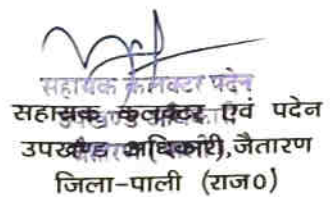 सहायक कलक्टर पदेन
सहायक कलक्टर एवं पदेन
उपखण्ड अधिकारी, जैतारण
जिला-पाली (राज०)